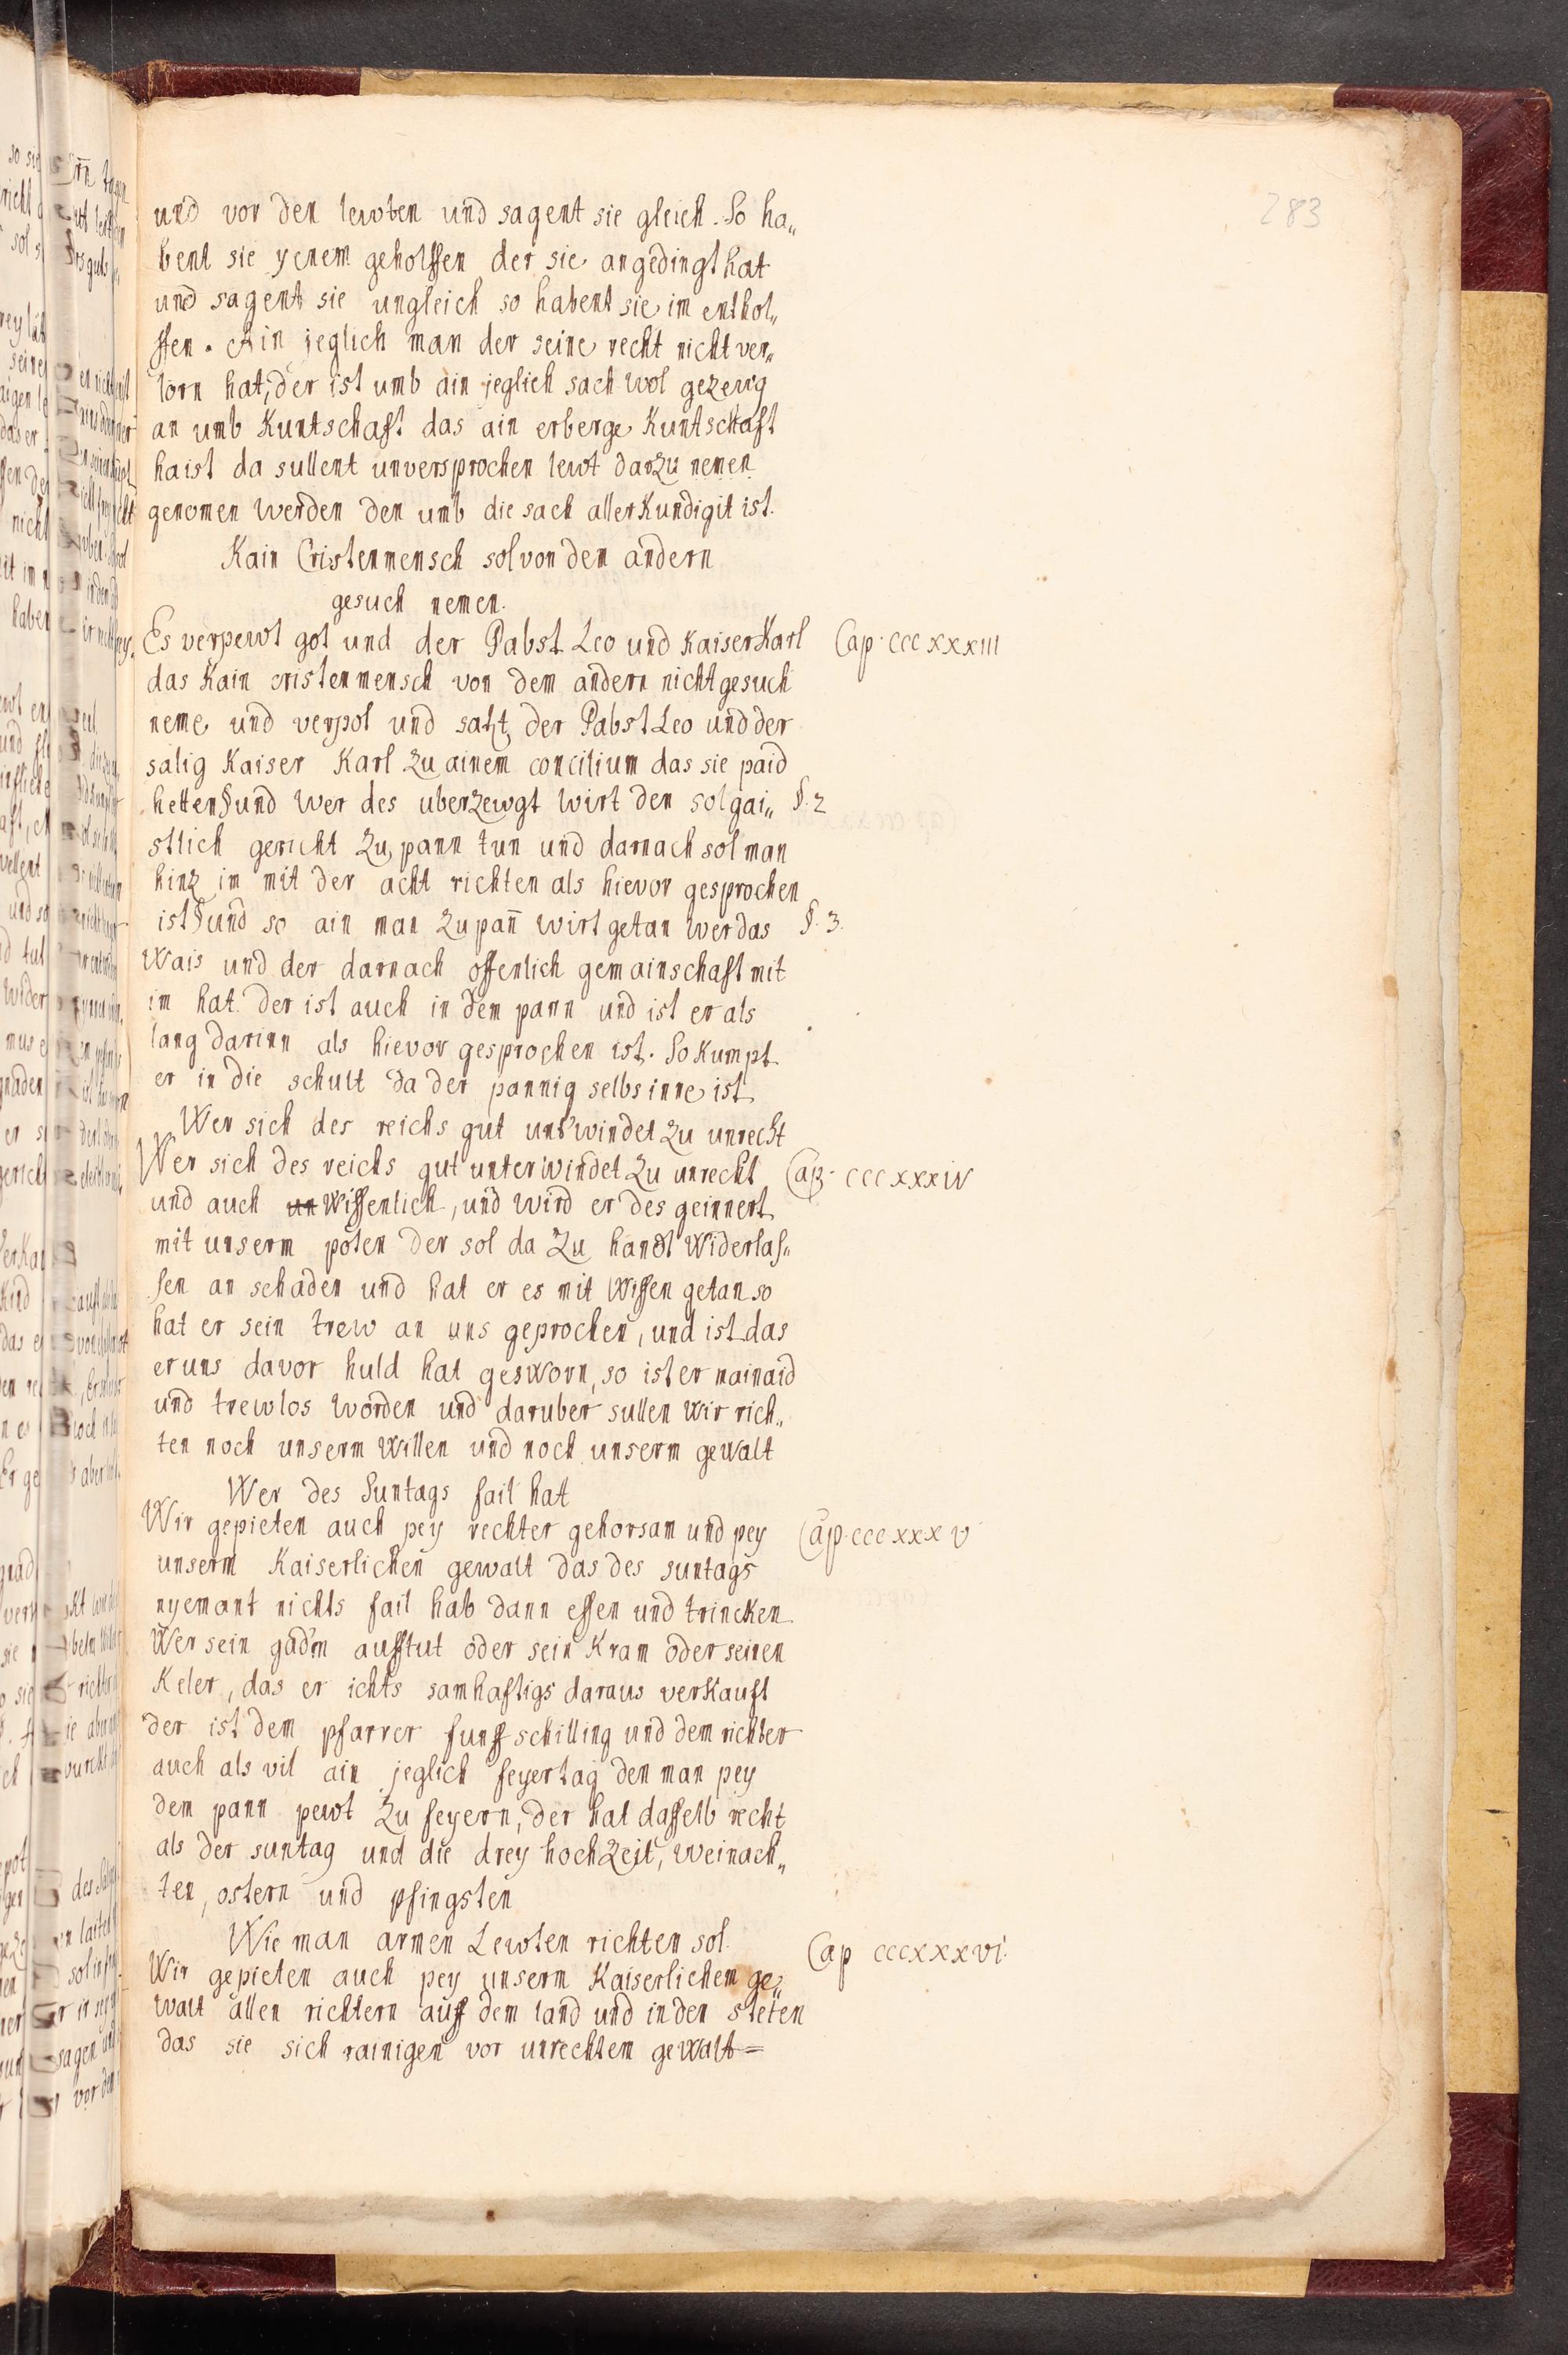 283
und vor den lewten und sagent sie gleich. So ha„
bent sie yenem geholffen der sie angedingt hat
und sagent sie ungleich so habent sie im enthol„
ffen. Ain jeglich man der seine recht nicht ver„
lorn hat, der ist umb ain jeglich sach wol gezewg
an umb Kuntschaft das ain erberge Kuntschaft
haist da sullent unversprochen lewt darzu nemen
genomen werden den umb die sach aller Kundigit ist.
Kain Cristenmensch sol von dem andern
gesuch nemen.
Es verpewt got und der Pabst Leo und Kaiser Karl Cap. CCCXXXIII
das Kain cristenmensch von dem andern nicht gesuch
neme und verpot und satzt der Pabst Leo und der
salig Kaiser Karl zu ainem concilium das sie paid
hetten § und wer des uberzewgt wirt den sol gai„ §. 2
stlich gericht zu pann tun und darnach sol man
hinz im mit der acht richten als hievor gesprochen
ist § und so ain man zu pan̄ wirt getan wer das §. 3.
wais und der darnach offenlich gemainschaft mit
im hat der ist auch in dem pann und ist er als
lang darinn als hievor gesprochen ist. So Kumpt
er in die schult da der pannig selbs inne ist
Wer sich des reichs gut und'windet zu unrecht
Wer sich des reichs gut unterwindet zu unrecht Cap. CCCXXXIV
und auch un wissenlich, und wird er des geinnert
mit unserm poten der sol da zu handt widerlas„
sen an schaden und hat er es mit wissen getan so
hat er sein trew an uns geprochen, und ist das
er uns davor huld hat gesworn, so ist er mainaid
und trewlos worden und daruber sullen wir rich„
ten noch unserm willen und noch unserm gewalt
Wer des Suntags fail hat
Wir gepieten auch pey rechter gehorsam und pey Cap. CCCXXXV
unserm Kaiserlichen gewalt das des suntags
nyemant nichts fail hab dann essen und trincken
Wer sein gad'm aufftut oder sein Kram oder seinen
Keler, das er ichts samhaftigs daraus verkauft
der ist dem pfarrer funff schilling und dem richter
auch als vil ain jeglich feyertag den man pey
dem pann pewt zu feyern, der hat dasselb recht
als der suntag und die drey hochzeit, weinach„
ten, ostern und pfingsten
Wie man armen Lewten richten sol. Cap CCCXXXVI.
Wir gepieten auch pey unserm Kaiserlichem ge„
walt allen richtern auff dem land und in den steten
das sie sich rainigen vor unrechtem gewalt=